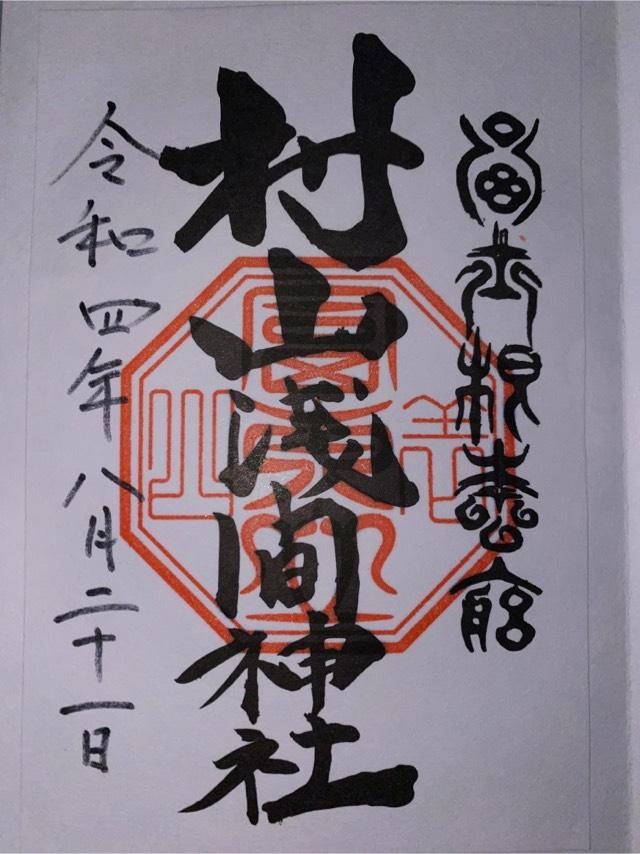 富士根本宮
村山浅間神社
令和四年八月二十一日